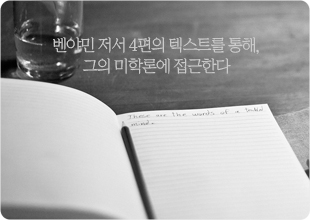 벤야민 저서 4편의 텍스트를 통해,
그의 미학론에 접근한다
These are the words of a
mind.